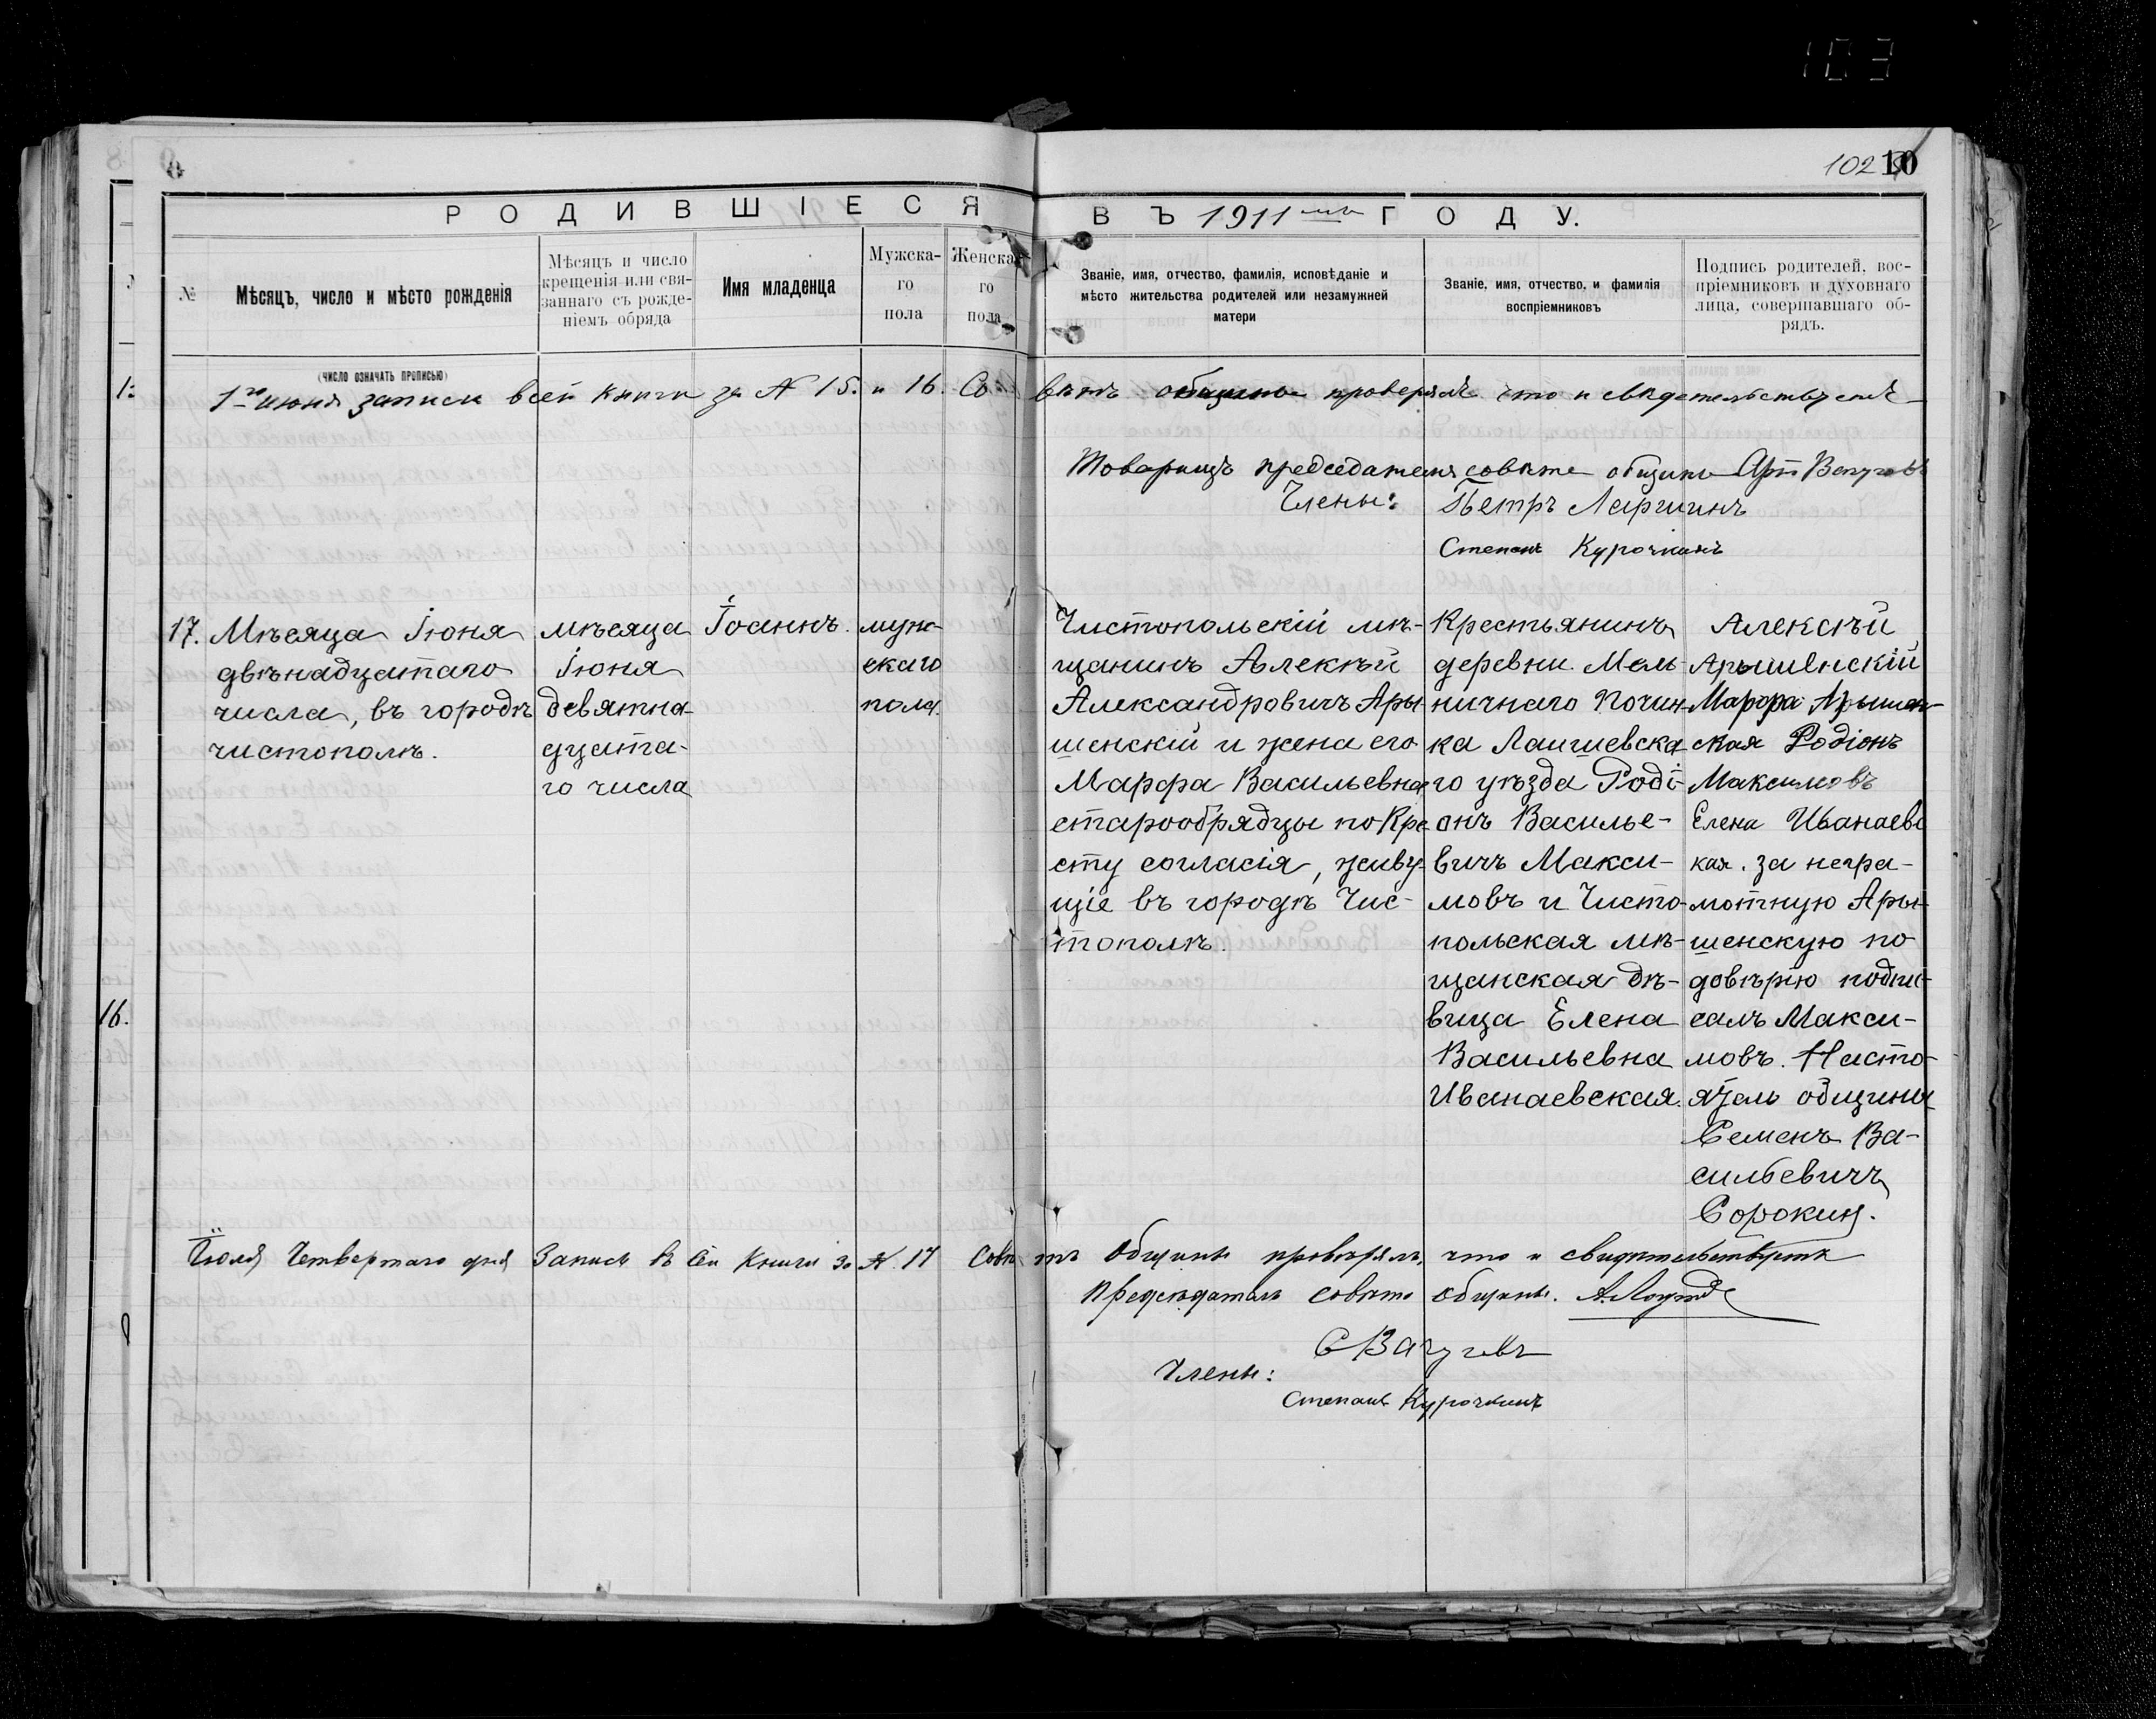 103
102 10
РОДИВШІЕСЯ ВЪ 1911 ГОДУ.
№
Мѣсяцъ, число и мѣсто рожденія
Мѣсяцъ и число
крещенія или свя-
заннаго съ рожде-
ніемъ обряда
Имя младенца
Мужска-
го
пола
Женска-
го
пола
Званіе, имя, отчество, фамилія, исповѣданіе и
мѣсто жительства родителей или незамужней
матери
Званіе, имя, отчество, и фамилія
воспріемниковъ
Подпись родителей, вос-
пріемниковъ и духовнаго
лица, совершавшаго об-
рядъ.
(число означать прописью)
1го июня записи всей книги за № 15. и 16. Совѣтъ общины проверялъ что и свѣдетельствуетъ
Товарищъ председателя совѣта общины Арт
Члены: Петръ Ляргинъ
Степанъ Курочкинъ
17.
Мѣсяца Іюня
двѣнадцатаго
числа, въ городѣ
чистополѣ.
мѣсяца
Іюня
девятна-
цата-
го числа
Іоаннъ.
муж-
скаго
пола.
Чистопольскій мѣ-
щанинъ Алексѣй
Александровичъ Ары-
шенскій и жена его
Марфа Васильевна
старообрядцы по Кре-
сту согласія, живу-
щіе въ городѣ Чис-
тополѣ.
Крестьянинъ
деревни Мель-
ничнаго Почин-
ка Лаишевска-
го уѣзда Роді-
онъ Василье-
вичъ Макси-
мовъ и Чисто-
польская мѣ-
щанская дѣ-
вица Елена
Васильевна
Иванаевская.
Алексѣй
Арышенскій
Марфа Арышен-
ская Родіонъ
Максимовъ
Елена Иванаевс
кая. за негра-
мотную Ары-
шенскую по
довѣрію подпи-
салъ Макси-
мовъ. Насто-
ятель общины
Семенъ Ва-
сильевичъ
Сорокин.
16.
Іюля Четвертаго дня Запись въ сей Книги за № 17 Совѣтъ Общины провѣрялъ, что и свидѣтельствуетъ
Предсѣдатель совѣта общины.
Члены:
Степанъ Курочкинъ